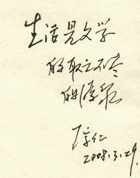 生活是文学
的取之不尽
的源泉
2008.3.29.